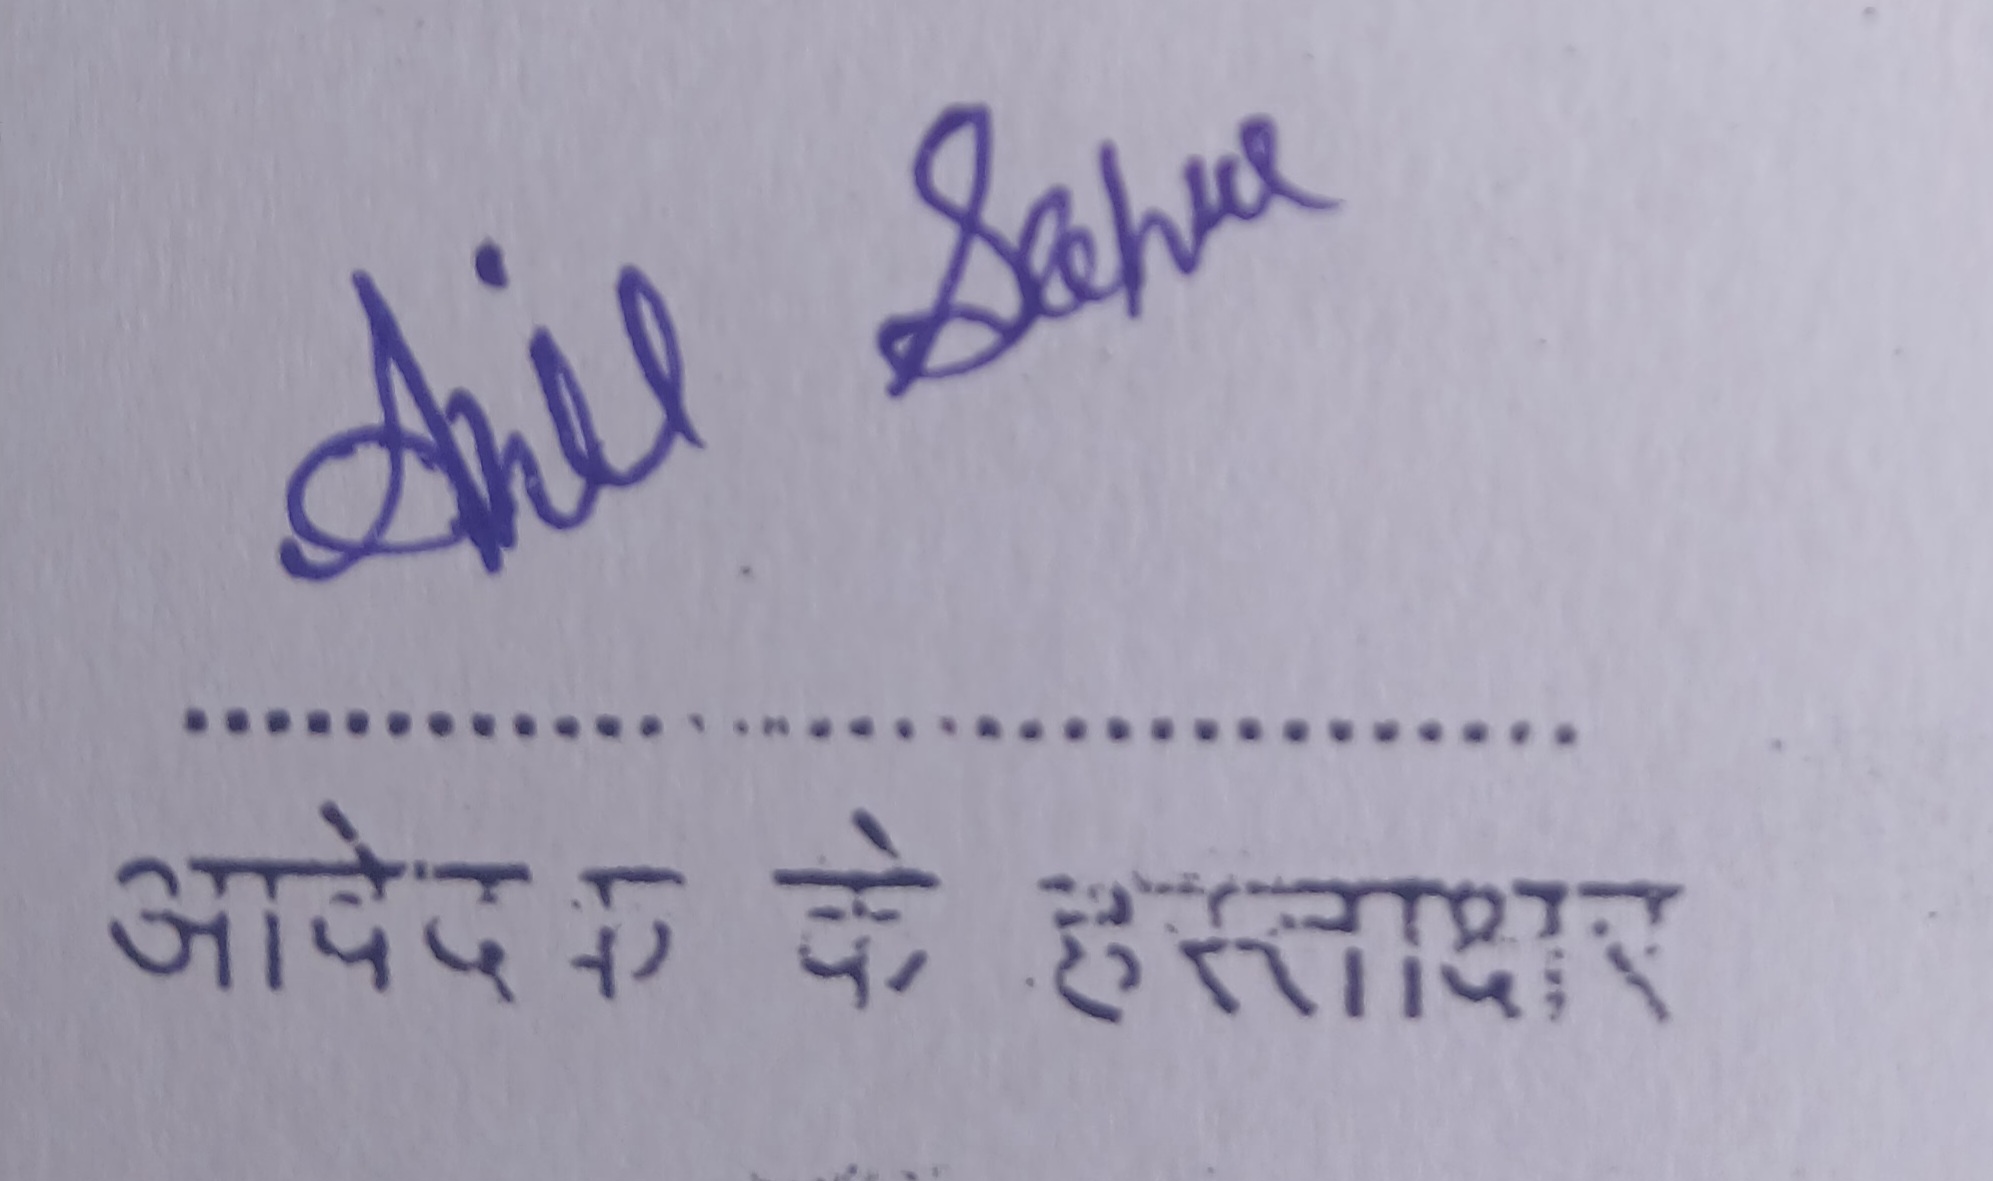 Anil Sahu
आवेदक के हस्ताक्षर